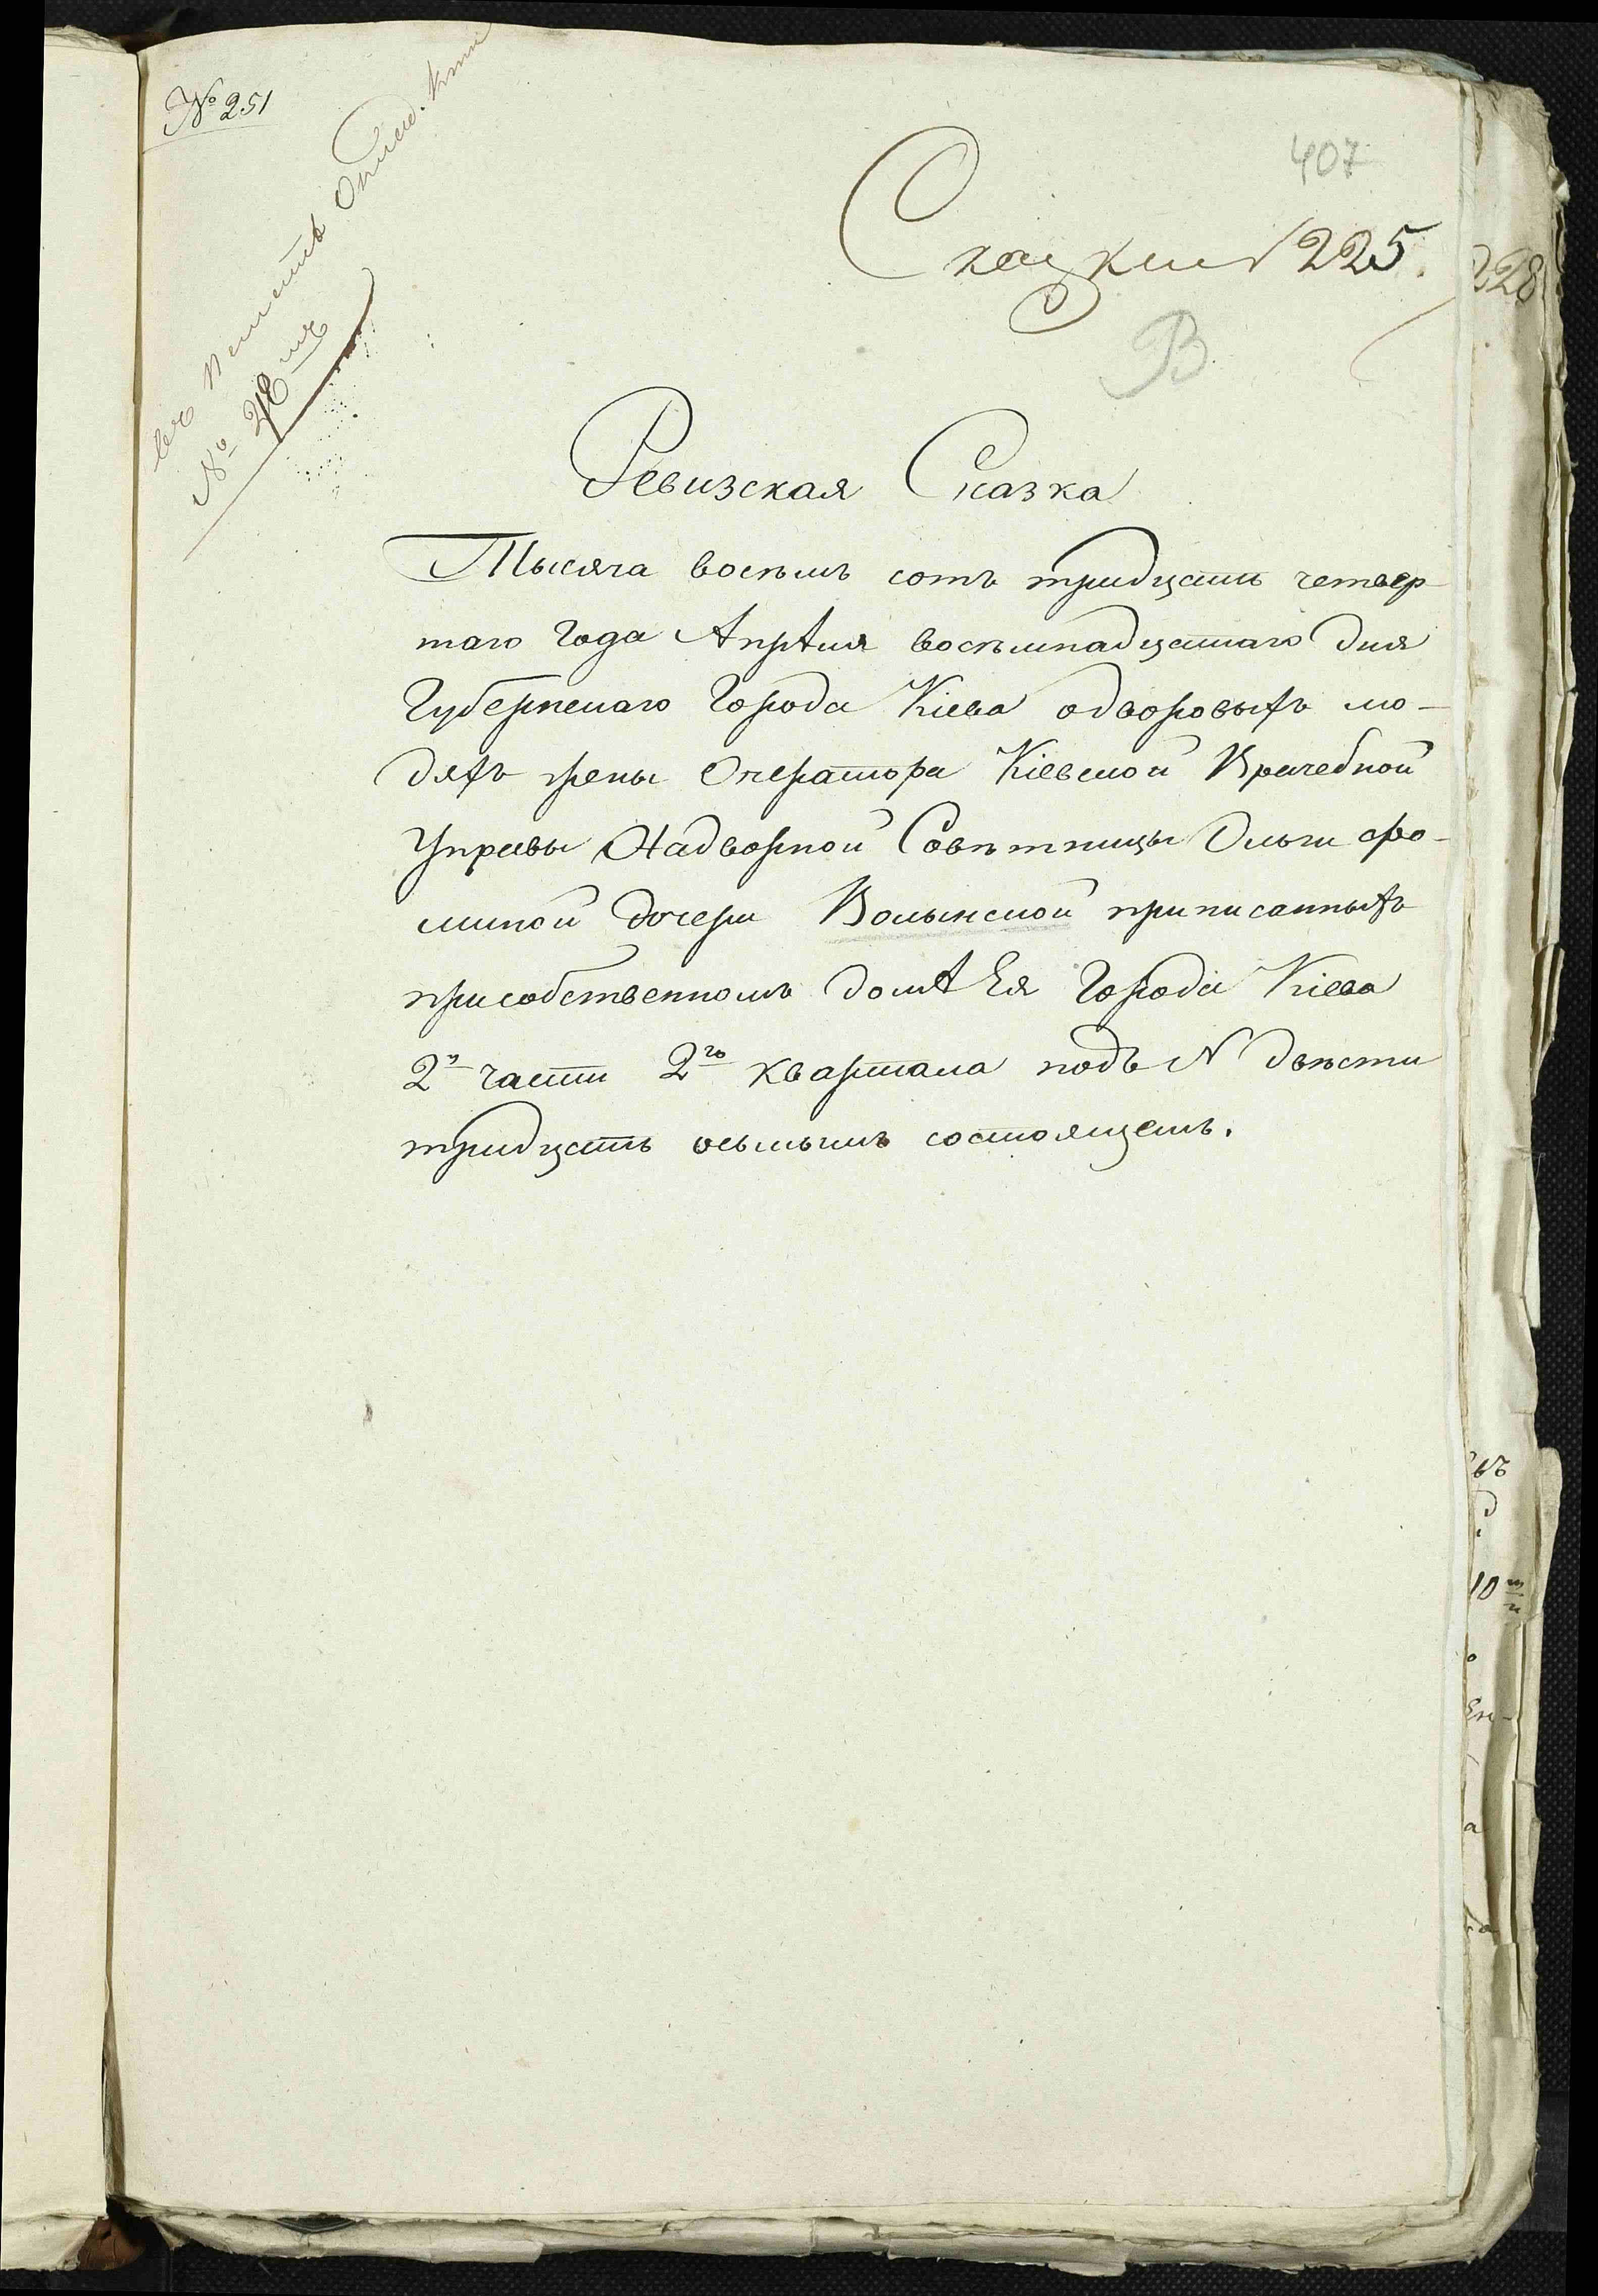 № 251
№ 28
407
Сказки № 225.
В
Ревизская Сказка
Тысяча восемь сотъ тридцать четвер
таго года Апрѣля восемнадцатаго дня
Губернскаго Города Кіева одворовыхъ лю-
дяхъ жены Оператора Кіевской Врачебной
Управы Надворной Совѣтницы Ольги Фо-
миной дочери Волынской приписанныхъ
присобственномъ домѣ Ея Города Кіева
2й части 2го квартала подъ № двѣсти
тридцать осьмымъ состоящемъ.